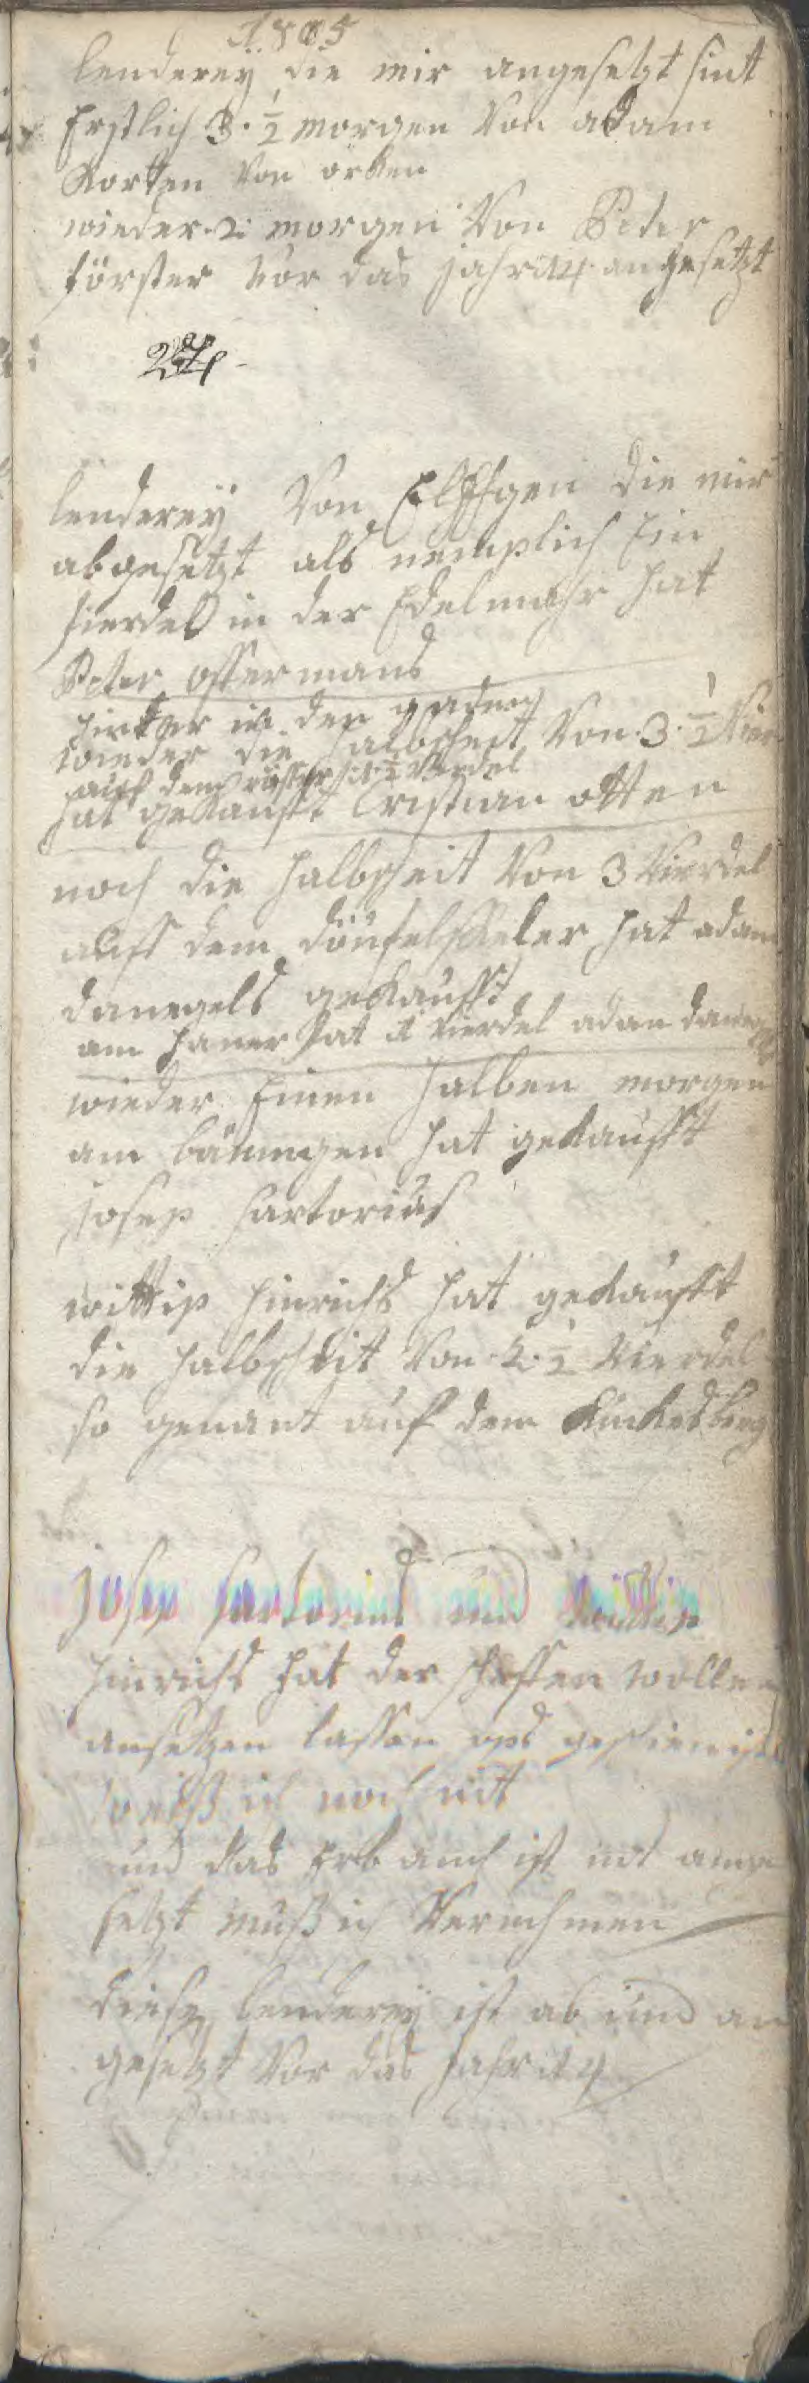 1805
lenderey die mir angesetzt sint
Erstlich 3 · ½ morgen Von adam
Korten von örken
wieder 2 morgen Von Peter
förster Vor das jahr 14 angesetzt
lenderey Von Elffgen die mir
abgesetzt als nemplich Ein
fierdel in der Edelmahr hat
Peter ossermans
hinter in den
wieder die halbscheit Von 3 · ½ Vier
auf dem 1 ½ Verdel
hat gekaufft Cristian otten
noch die halbscheit Von 3 Vierdel
auff dem hat adam
danegels gekaufft
am haner hat 1 Vierdel adam daneg
wieder Einen halben morgen
am bäumgen hat gekaufft
josep sartorius
wittip hinrichs hat gekaufft
die halbscheit Von 2 · ½ Vierdel
so genant auf dem Kuckesberg
josep sartorius und wittip
hinrichs hat der scheffen wollen
ansetzen lassen obs geschien ist
weiß ich noch nit
und das Erb auch ist nit ange
setzt muß ich Vernehmen
diese lenderey ist ab und an
gesetzt Vor das jahr 14